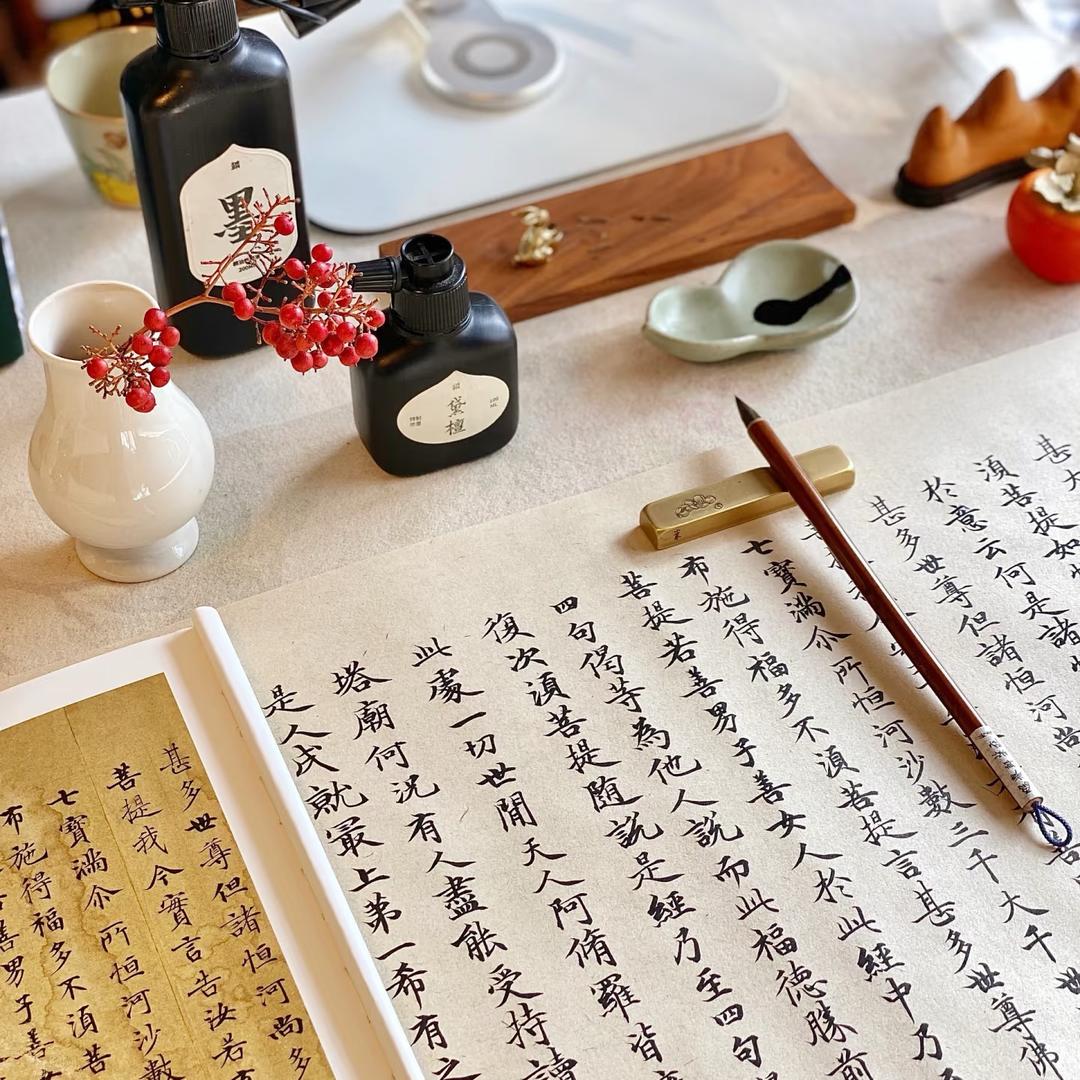 墨
黛檀
100
ML
甚大
須菩提如恒
於意云何是諸恒
甚多世尊但諸恒河尚
菩
七寶滿尒所恒河沙數三千大千世
布施得福多不須菩提言甚多世尊佛
菩提若善男子善女人於此經中乃
四句偈等為他人說而此福德勝前
復次須菩提隨說是經乃至四句
此處一切世間天人阿脩羅皆
塔廟何況有人盡能受持讀
是人成就最上第一希有之
甚多世尊但諸恒河尚多
菩提我今實言告汝若
七寶滿尒所恒河沙數
布施得福多不須菩
善男子善